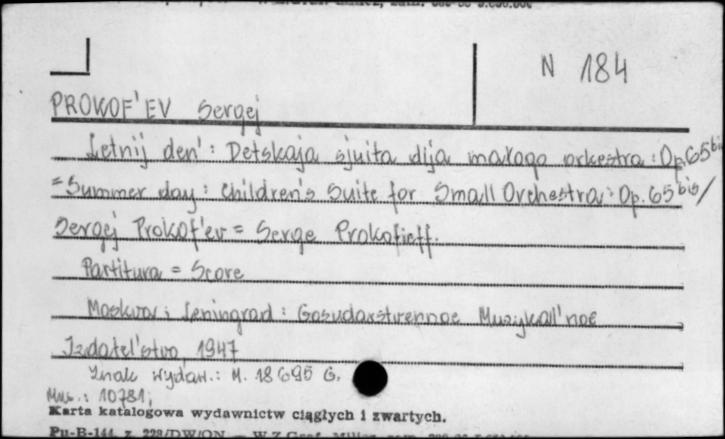 N 184
PROKOF'EV Sergej
Letnij den': Detskaja sjuita dlja małogo orkestra: Op. 65 bis
= Summer day: Children's Suite for Small Orchestra: Op. 65 bis /
Sergej Prokof'ev = Serge Prokofieff.
Partitura = Score
Moskva; Leningrad: Gosudarstvennoe Muzykal'noe
Izdatel'stvo, 1947
Znak wydaw.: M. 18695 G.
Mus.: 10781;
Karta katalogowa wydawnictw ciągłych i zwartych.
Pu-B-144, z. 228/DW/ON — W.Z.Graf.